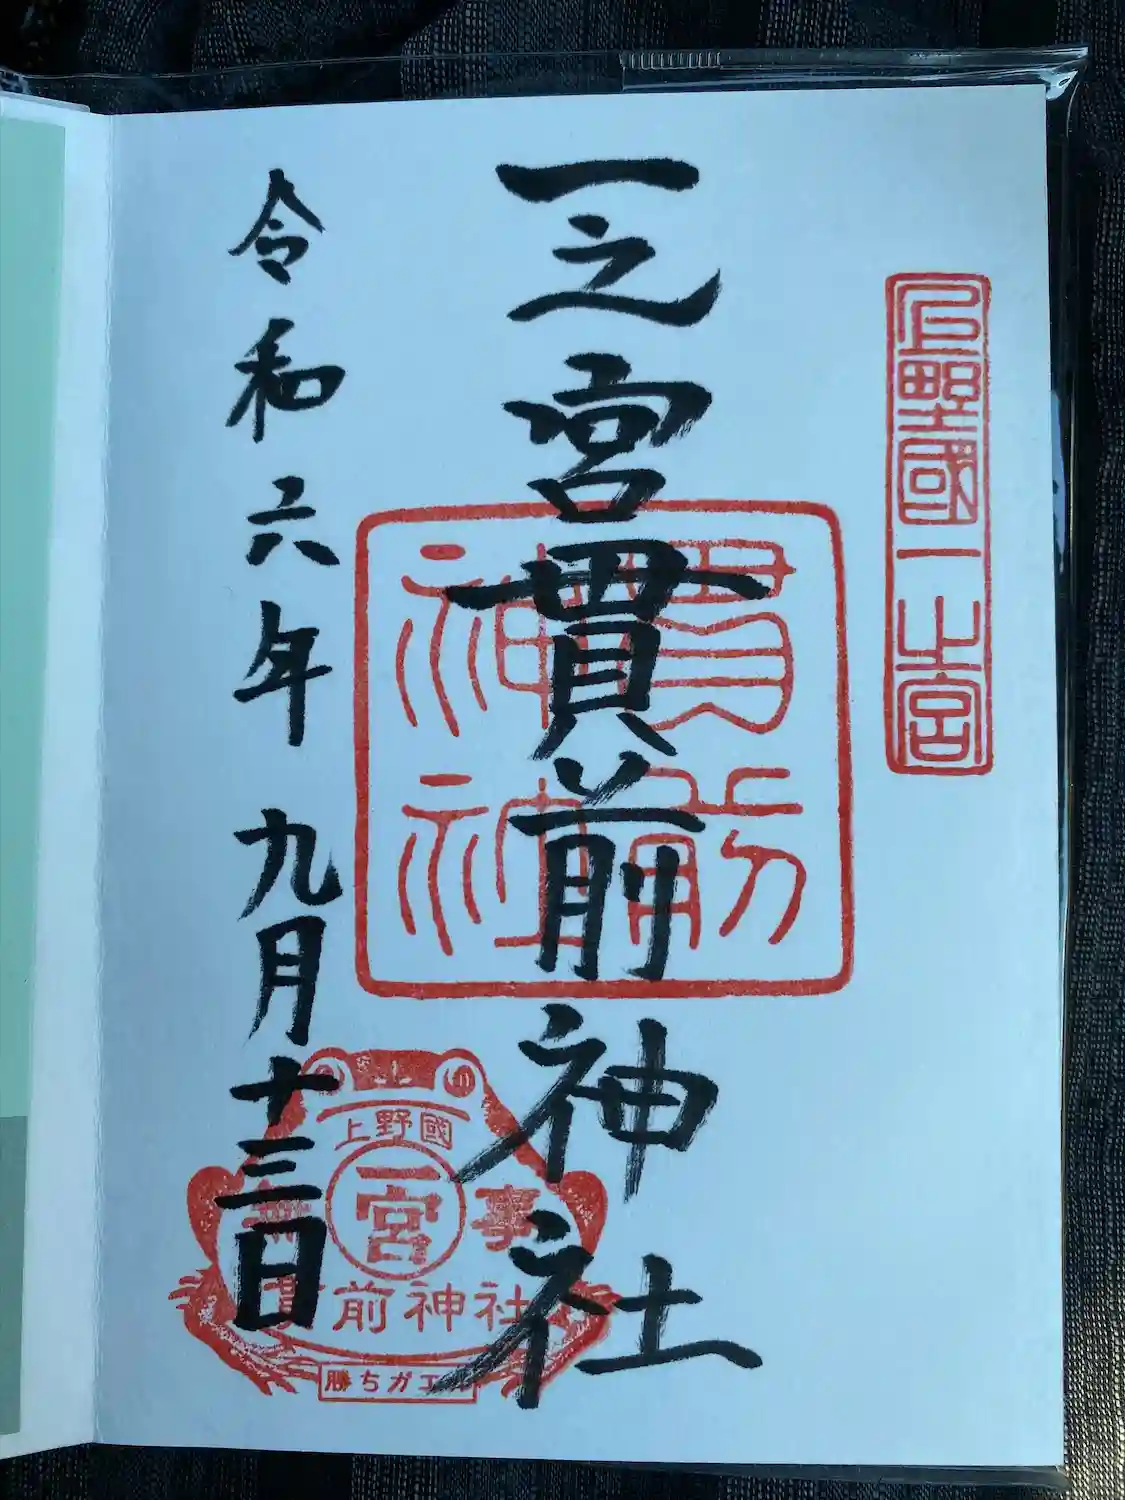 上野國一之宮
一之宮貫前神社
貫前
神社
令和六年九月十三日
上野國
一宮
無事
貫前神社
勝ちガエル